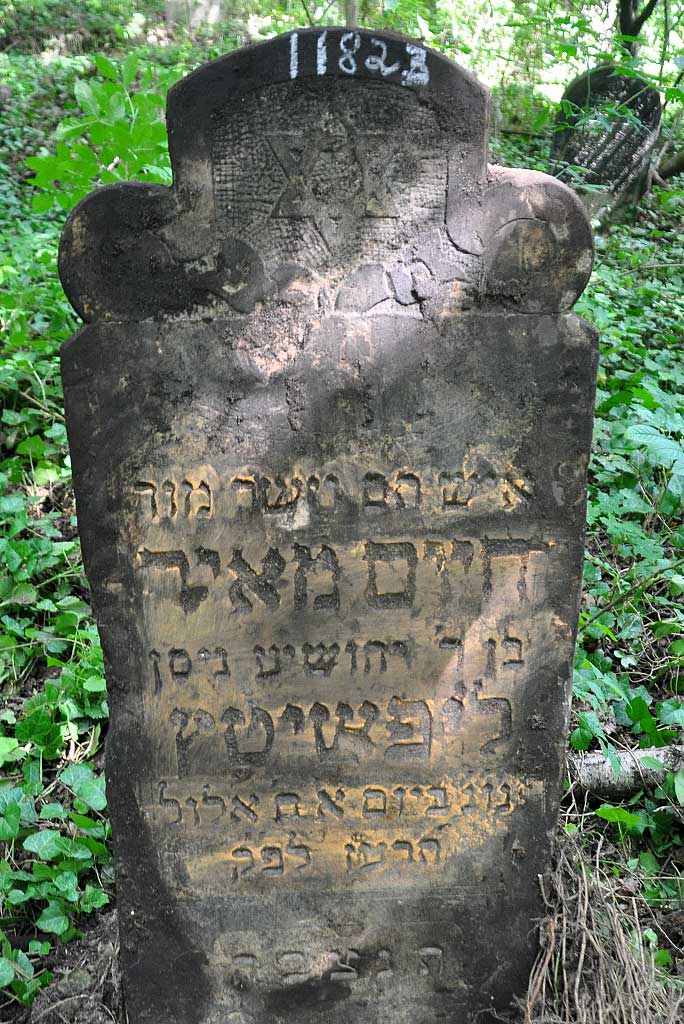 11823
איש תם וישר מור
חיים מאיר
בן ר' יהושיע ניסן
ליפשיטץ
ביום א ח אלול
תרסז לפק
ת נ צ ב ה